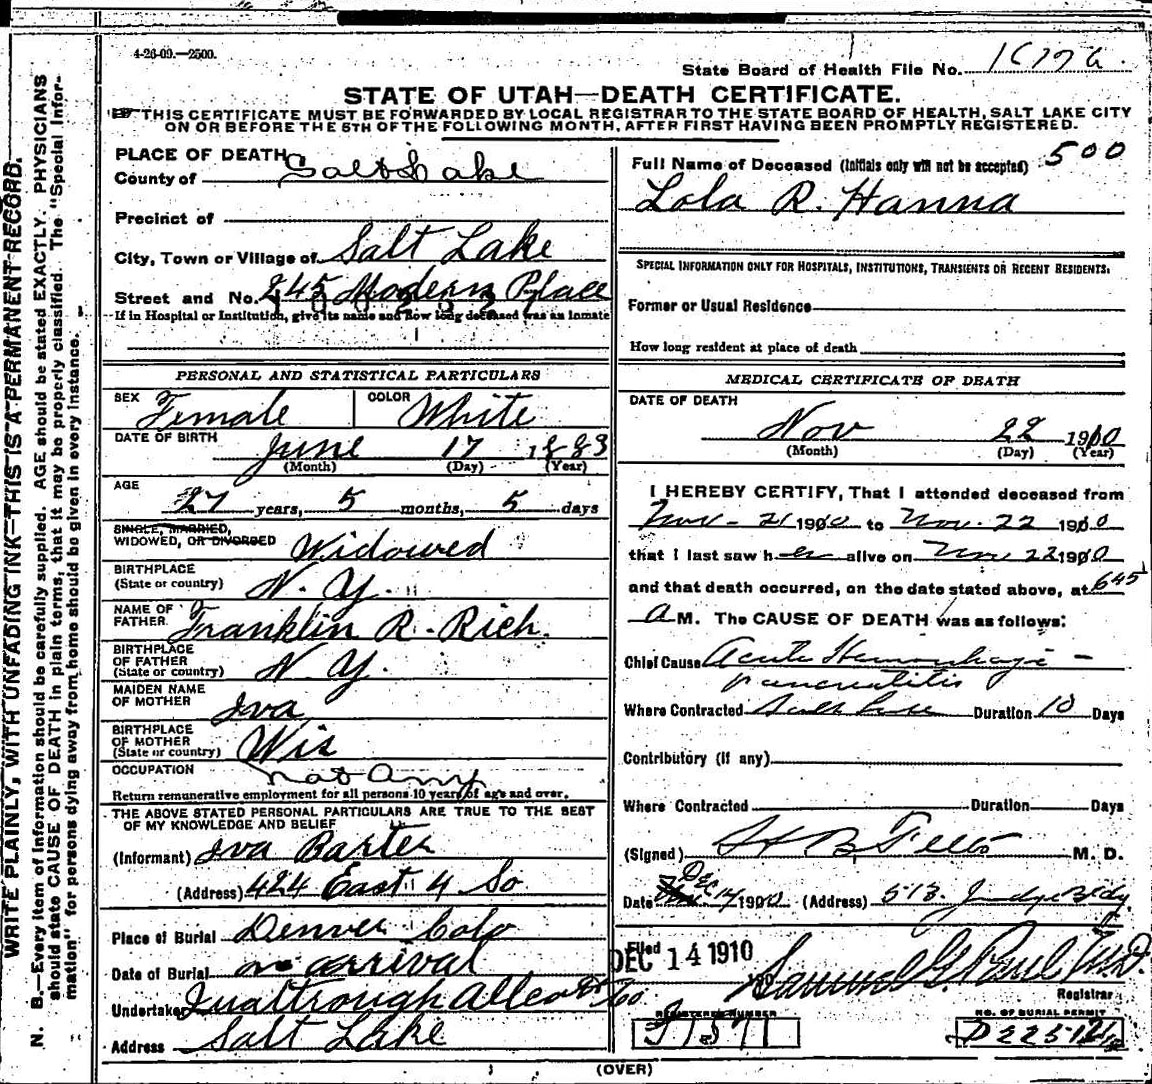 4-26-09.—2500.
State Board of Health File No.
STATE OF UTAH—DEATH CERTIFICATE.
THIS CERTIFICATE MUST BE FORWARDED BY LOCAL REGISTRAR TO THE STATE BOARD OF HEALTH, SALT LAKE CITY
ON OR BEFORE THE 5TH OF THE FOLLOWING MONTH, AFTER FIRST HAVING BEEN PROMPTLY REGISTERED.
WRITE PLAINLY, WITH UNFADING INK—THIS IS A PERMANENT RECORD.
N. B.—Every item of information should be carefully supplied. AGE should be stated EXACTLY. PHYSICIANS
should state CAUSE OF DEATH in plain terms, that it may be properly classified. The "Special Infor-
mation" for persons dying away from home should be given in every instance.
PLACE OF DEATH
County of Salt Lake
Precinct of
City, Town or Village of Salt Lake
Street and No. 245 Modern Place
If in Hospital or Institution, give its name and how long deceased was an inmate
PERSONAL AND STATISTICAL PARTICULARS
SEX Female COLOR White
DATE OF BIRTH June 17 1883
(Month) (Day) (Year)
AGE
27 years, 5 months, 5 days
SINGLE, MARRIED,
WIDOWED, OR DIVORCED Widowed
BIRTHPLACE
(State or country) N. Y.
NAME OF
FATHER Franklin R. Rich.
BIRTHPLACE
OF FATHER
(State or country) N. Y.
MAIDEN NAME
OF MOTHER Iva
BIRTHPLACE
OF MOTHER
(State or country) Wis
OCCUPATION not any
Return remunerative employment for all persons 10 years of age and over.
THE ABOVE STATED PERSONAL PARTICULARS ARE TRUE TO THE BEST
OF MY KNOWLEDGE AND BELIEF
(Informant) Iva Baxter
(Address) 424 East 4 So
Place of Burial Denver Colo
Date of Burial on arrival
Undertaker
Address Salt Lake
Full Name of Deceased (Initials only will not be accepted) 500
Lola R. Hanna
SPECIAL INFORMATION ONLY FOR HOSPITALS, INSTITUTIONS, TRANSIENTS OR RECENT RESIDENTS.
Former or Usual Residence
How long resident at place of death
MEDICAL CERTIFICATE OF DEATH
DATE OF DEATH
Nov 22 1910
(Month) (Day) (Year)
I HEREBY CERTIFY, That I attended deceased from
Nov - 21 1910 to Nov. 22 1910
that I last saw her alive on Nov 22 1910
and that death occurred, on the date stated above, at 645
A M. The CAUSE OF DEATH was as follows:
Chief Cause Acute Hemorrhagic -
pancreatitis
Where Contracted Salt Lake Duration 10 Days
Contributory (if any)
Where Contracted Duration Days
(Signed) M. D.
Date Dec 14 1910 (Address) 513 Judge Bldg
Filed DEC 14 1910 Samuel G. Paul M.D.
Registrar
REGISTERED NUMBER
NO. OF BURIAL PERMIT
(OVER)